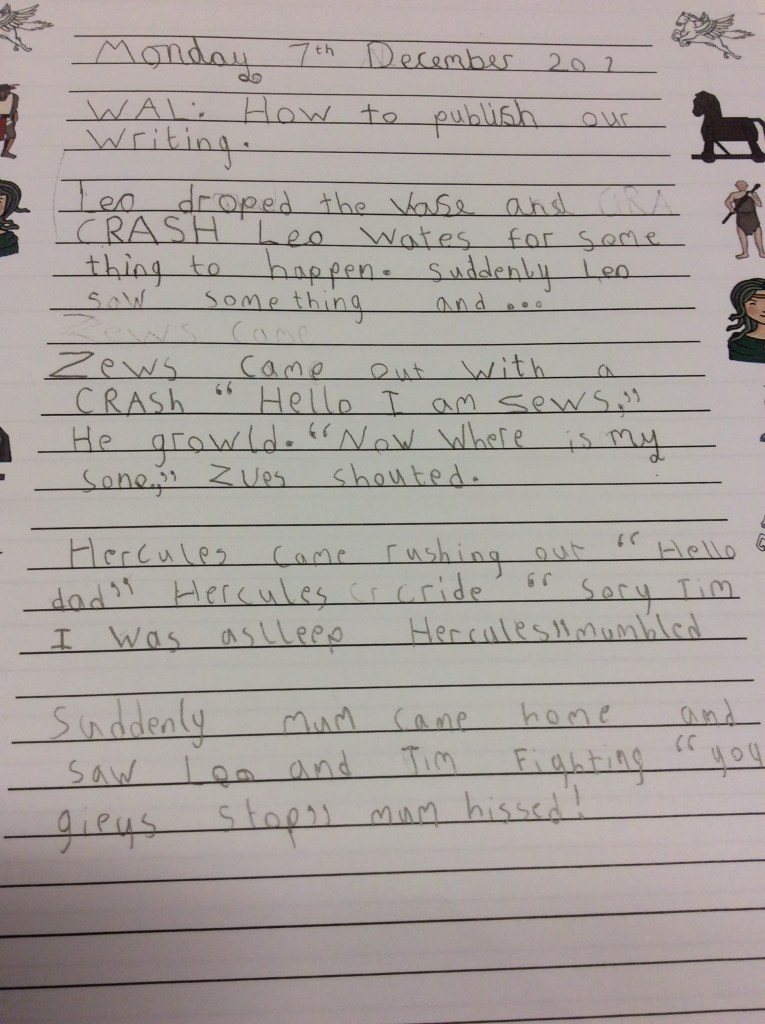 Monday 7th December 202
WAL: How to publish our
Writing.
Leo droped the vase and CRA
CRASH Leo Wates for some
thing to happen. suddenly Leo
saw something and ...
Zews came
Zews came out with a
CRASh “ Hello I am sews,”
He growld. “Now Where is my
sone,” Zues shouted.
Hercules came rushing out “ Hello
dad” Hercules cr cride “ sory Tim
I was aslleep Hercules”mumbled
Suddenly mum came home and
saw Leo and Tim Fighting “you
gieys stop” mum hissed!